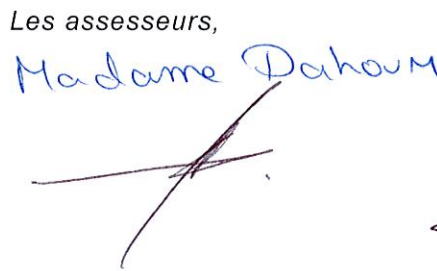 Les assesseurs,
Madame Dahoum